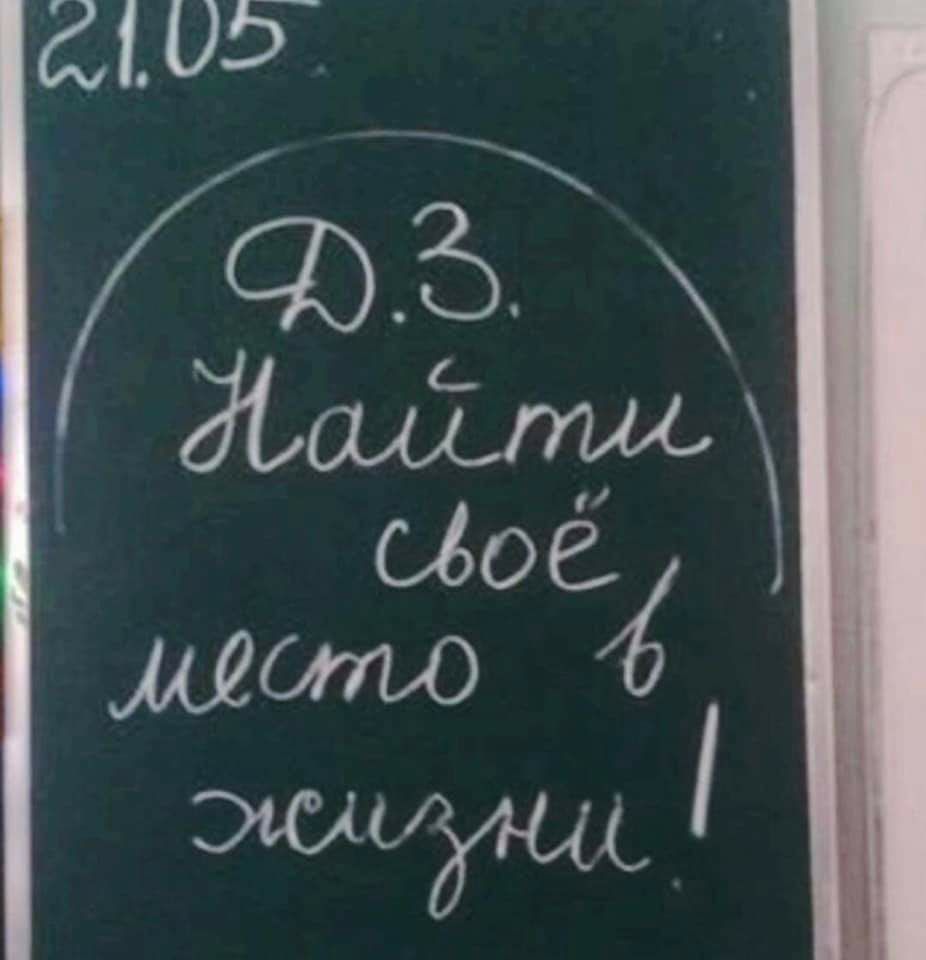 21.05
Д.З.
Найти
своё
место в
жизни!